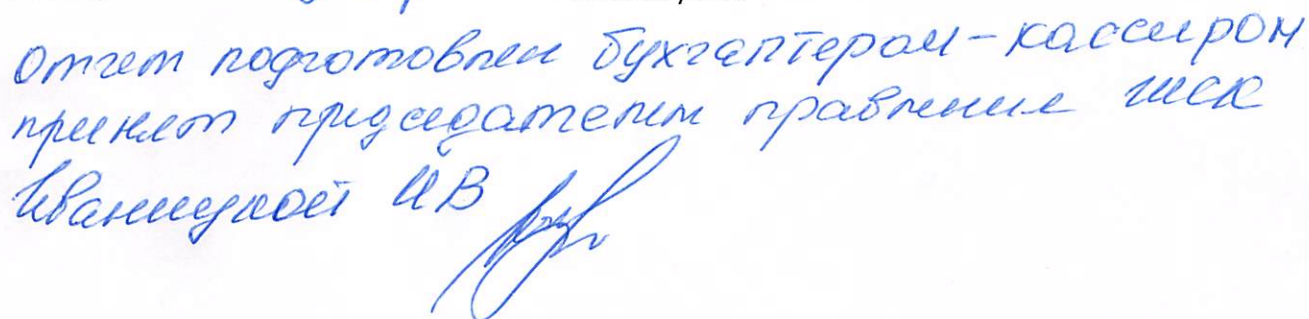 отчет подготовлен бухгалтером-кассиром
принят председателем правления ЖСК
Иваницкой ИВ